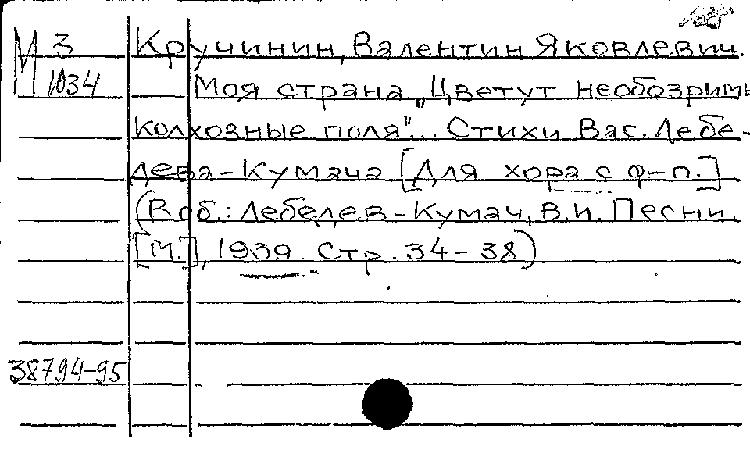 М 3 Кручинин, Валентин Яковлевич.
1034 Моя страна „Цветут необозримы
колхозные поля"... Стихи Вас. Лебе-
дева-Кумача [Для хора с ф-п.]
(В сб.: Лебедев-Кумач, В.И. Песни.
[М.], 1939. Стр. 34-38)
38794-95